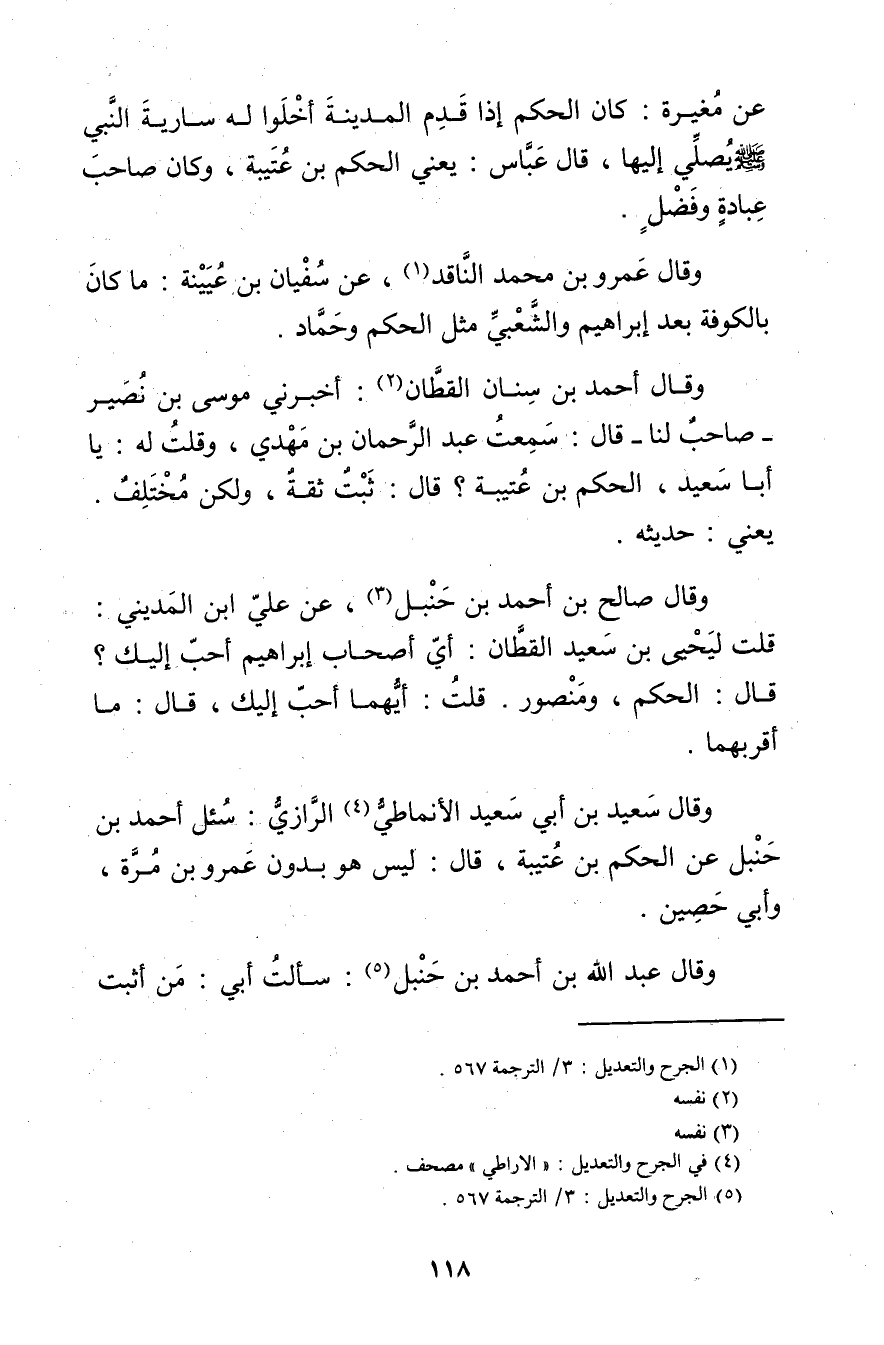 عن مُغيـرة : كان الحكم إذا قَـدِم المـدينـةَ أخْلَوا لـه سـاريـةَ النَّبي
ﷺ يُصلِّي إليها ، قال عَبَّاس : يعني الحكم بن عُتَيبة ، وكان صاحبَ
عِبادةٍ وفَضْلٍ .
وقال عَمرو بن محمد النَّاقد(١) ، عن سُفْيان بن عُيَيْنة : ما كانَ
بالكوفة بعد إبراهيم والشَّعْبيِّ مثل الحكم وحَمَّاد .
وقـال أحمد بن سِنـان القطَّان(٢) : أخبـرني موسى بن نُصَيـر
ـ صاحبٌ لنا ـ قال : سَمِعتُ عبد الرَّحمان بن مَهْدي ، وقلتُ له : يا
أبـا سَعيد ، الحكم بن عُتيبـة ؟ قال : ثَبْتٌ ثقـةٌ ، ولكن مُخْتَلِفٌ .
يعني : حديثه .
وقال صالح بن أحمد بن حَنْبـل(٣) ، عن عليّ ابن المَديني :
قلت ليَحْيى بن سَعيد القطَّان : أيّ أصحـاب إبراهيم أحبّ إليـك ؟
قـال : الحكم ، ومَنْصور . قلتُ : أيُّهمـا أحبّ إليك ، قـال : مـا
أقربهما .
وقال سَعيد بن أبي سَعيد الأنماطيُّ(٤) الرَّازيُّ : سُئل أحمد بن
حَنْبل عن الحكم بن عُتيبة ، قال : ليس هو بـدون عَمرو بن مُـرَّة ،
وأبي حَصِين .
وقال عبد الله بن أحمد بن حَنْبل(٥) : سـألتُ أبي : مَن أثبت
(١) الجرح والتعديل : ٣/ الترجمة ٥٦٧ .
(٢) نفسه
(٣) نفسه
(٤) في الجرح والتعديل : « الاراطي » مصحف .
(٥) الجرح والتعديل : ٣/ الترجمة ٥٦٧ .
١١٨